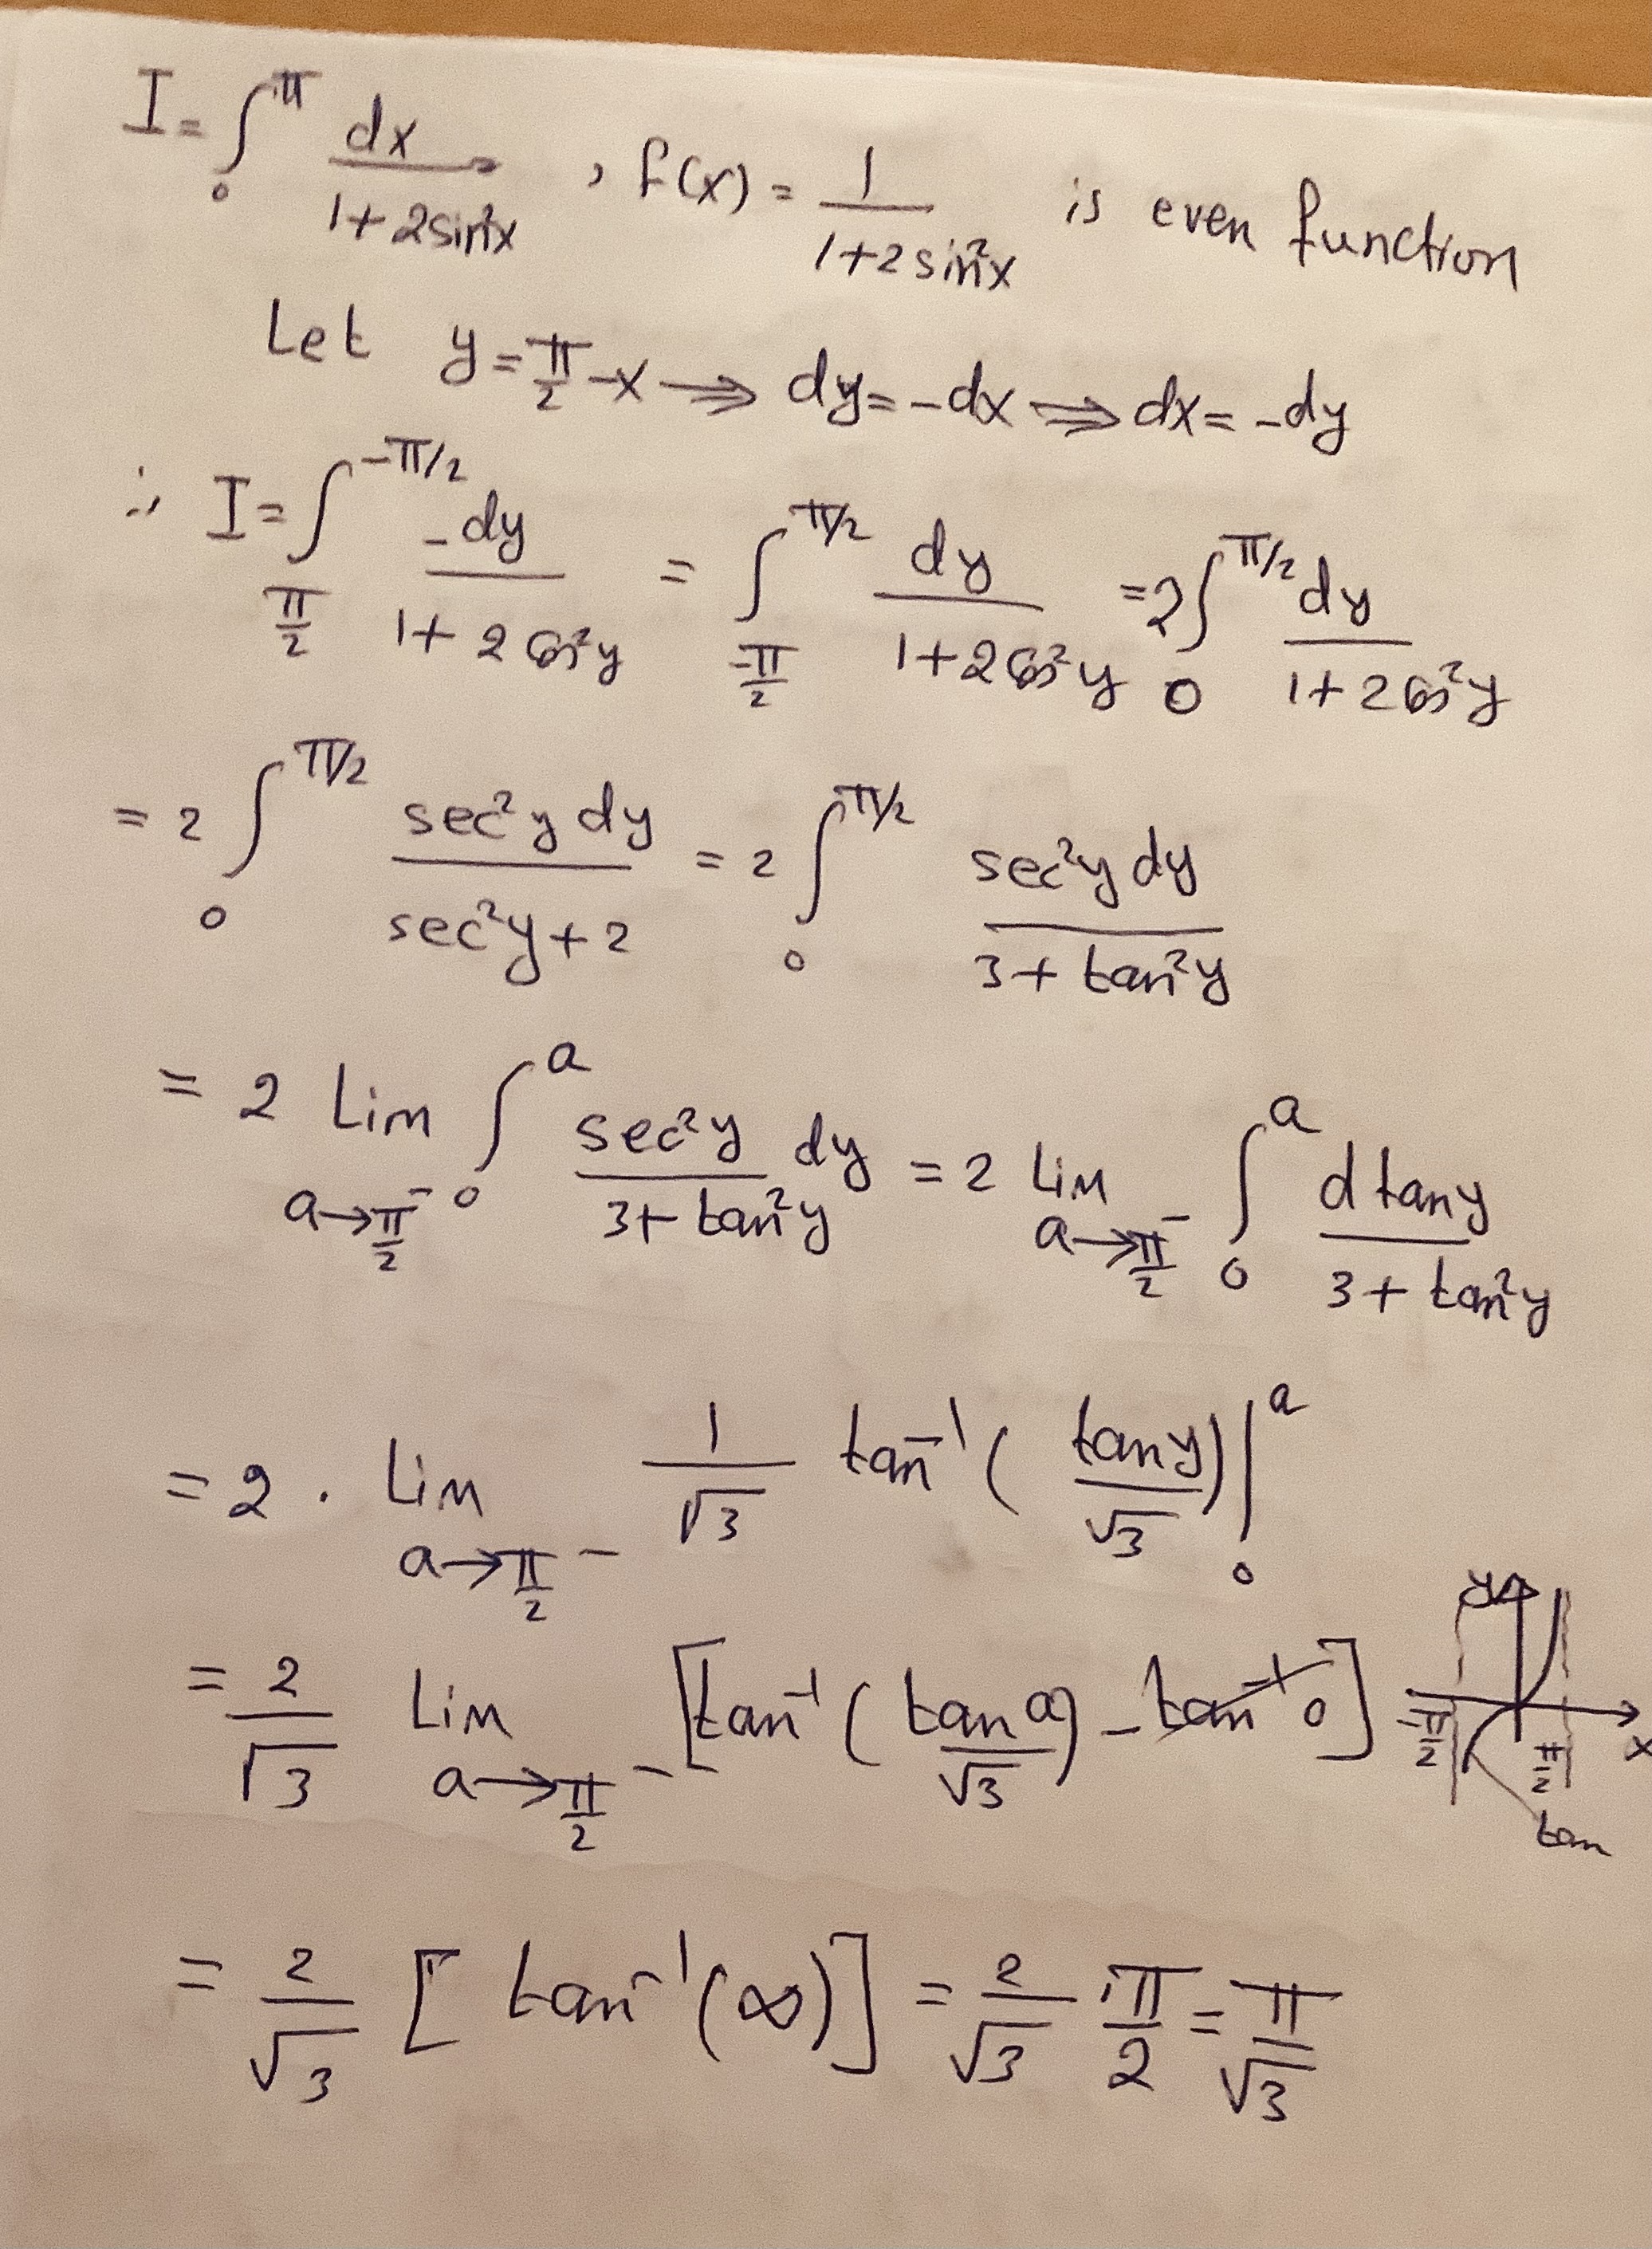 I = ∫₀^π dx / (1+2sin²x) , f(x) = 1 / (1+2sin²x) is even function
Let y = π/2 - x ⟹ dy = -dx ⟹ dx = -dy
∴ I = ∫_{π/2}^{-π/2} -dy / (1+2cos²y) = ∫_{-π/2}^{π/2} dy / (1+2cos²y) = 2∫₀^{π/2} dy / (1+2cos²y)
= 2 ∫₀^{π/2} sec²y dy / (sec²y+2) = 2 ∫₀^{π/2} sec²y dy / (3+tan²y)
= 2 Lim_{a→π/2⁻} ∫₀^a sec²y / (3+tan²y) dy = 2 Lim_{a→π/2⁻} ∫₀^a d tany / (3+tan²y)
= 2 . Lim_{a→π/2⁻} 1/√3 tan⁻¹( tany/√3 )|₀^a
= 2/√3 Lim_{a→π/2⁻} [tan⁻¹( tan a/√3 ) - tan⁻¹0]
y
-π/2 π/2 x
tan
= 2/√3 [ tan⁻¹(∞) ] = 2/√3 π/2 = π/√3